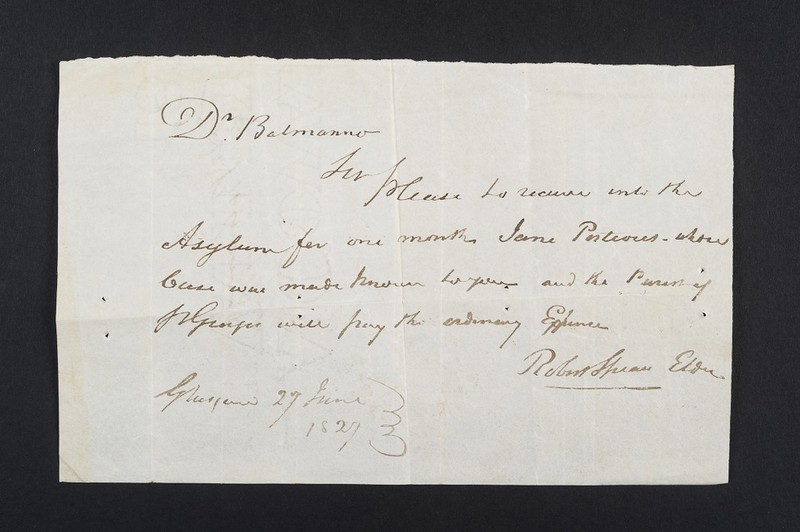 Dr Balmanno
Sir
Please to receive into the
Asylum for one month Jane Porteous - whose
Case was made known to you and the Parish of
St Georges will pay the ordinary Expence
Robert Elder
Glasgow 27 June
1827